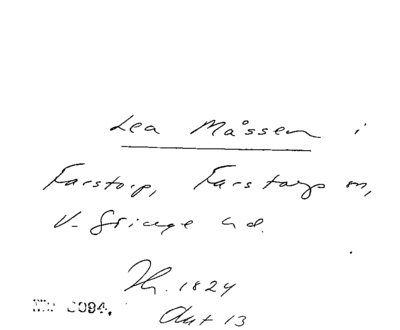 Lea Måssen i
Farstorp, Farstorps sn,
V. Göinge hd.
Th. 1824
3094.
Aut 13